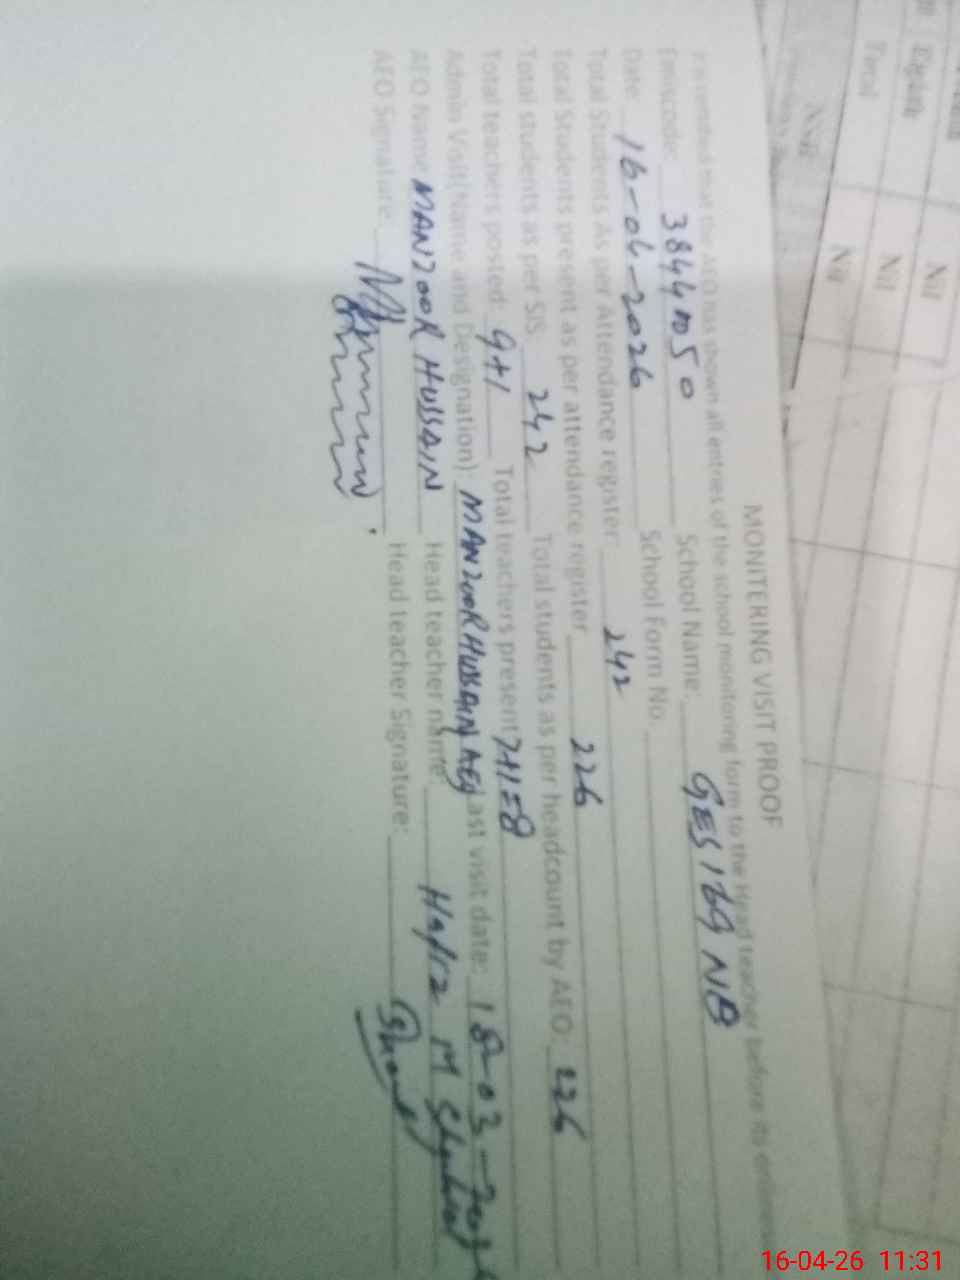 Eighth
Nil
Total
Nil
Nil
MONITERING VISIT PROOF
that the AEO has shown all entries of the school monitoring form to the Head teacher before its
Emiscode: 38440050 School Name: GES 169 NB
Date: 16-04-2026 School Form No.
Total Students As per Attendance register: 242
Total Students present as per attendance register 226
Total students as per SIS 242 Total students as per headcount by AEO: 226
Total teachers posted: 9+1 Total teachers present 7+1=8
Admin Visit(Name and Designation): MANZOOR HUSSAIN AEO Last visit date: 18-03-
AEO Name MANZOOR HUSSAIN Head teacher name: Hafiz M
AEO Signature: Head teacher Signature:
16-04-26 11:31